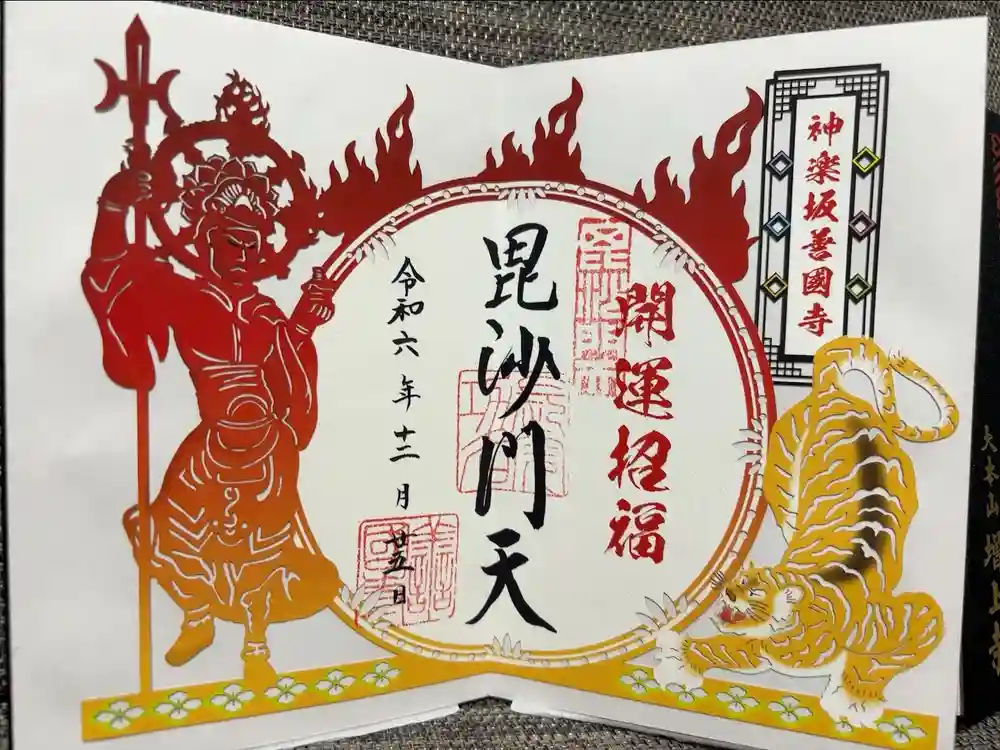 神楽坂善國寺
開運招福
毘沙門天
令和六年十二月廿五日
善國寺
大本山增上寺